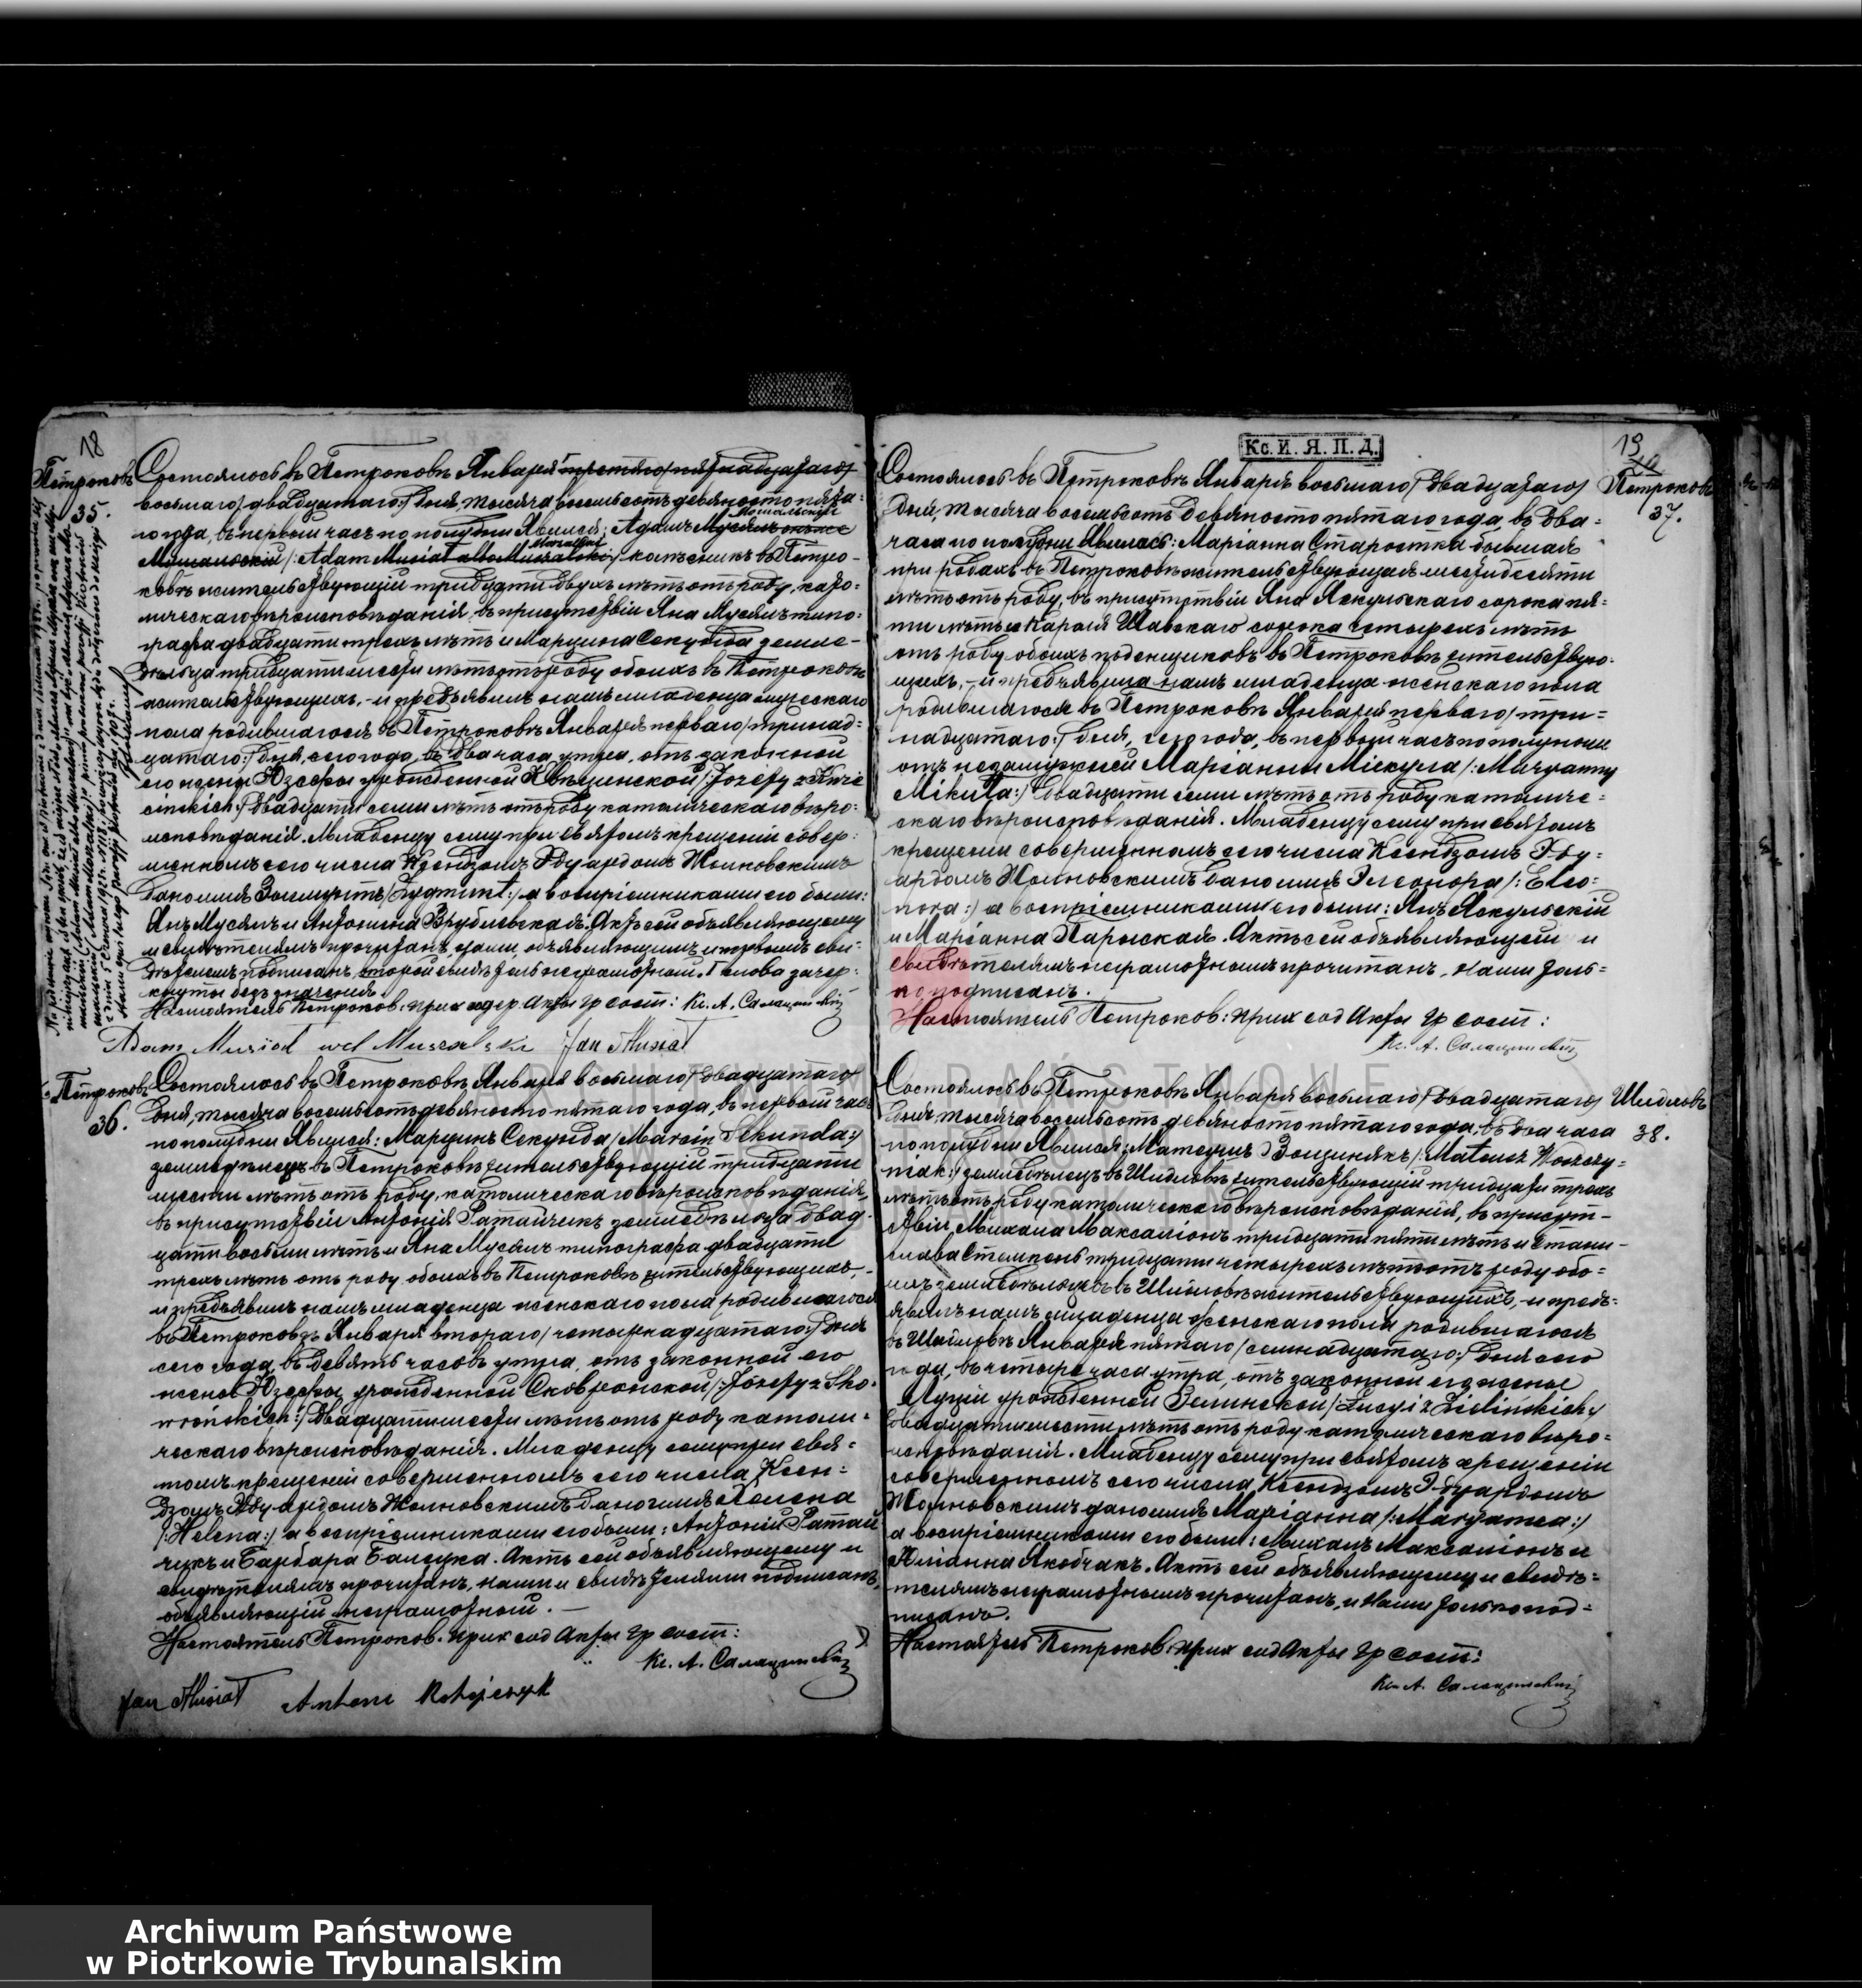 18
Петроковъ
35.
Состоялось въ Петроковѣ Января
восьмаго /двадцатаго:/ дня, тысяча восемьсотъ девяносто пята-
го года, въ первый часъ по полудни Явился: Адамъ Мусялъ
/: Adam Musiał albo Musialski:/ въ Петро-
ковѣ жительствующій тридцати двухъ лѣтъ отъ роду, като-
лическаго вѣроисповѣданія, въ присутствіи Яна Мусялъ типо-
графа двадцати трехъ лѣтъ и Марцина Секунда земле-
дѣльца тридцати шести лѣтъ отъ роду обоихъ въ Петроковѣ
жительствующихъ, - и предъявилъ намъ младенца мужескаго
пола родившагося въ Петроковѣ Января перваго /тринад-
цатаго:/ дня, сего года, въ два часа утра, отъ законной
его жены Юзефы урожденной /:Józefy z
двадцати семи лѣтъ отъ роду католическаго вѣро-
исповѣданія. Младенцу сему при святомъ крещеніи совер-
шенномъ сего числа Ксендзомъ Эдуардомъ Жолновскимъ
дано имя Зыгмунтъ /Zygmunt:/ а воспріемниками его были:
Янъ Мусялъ и Антонина Врублевская. Актъ сей объявляющему
и свидѣтелямъ прочитанъ, нами, объявляющимъ и первымъ сви-
дѣтелемъ подписанъ, второй свидѣтель неграмотный. Слова зачер-
кнуты безъ значенія.
Настоятель Петроков: прих содер. Акты Гр сост: Кс. А.
Adam Musiał vel Musialski Jan Musiał
Петроковъ
36.
Состоялось въ Петроковѣ Января восьмаго /двадцатаго/
дня, тысяча восемьсотъ девяносто пятаго года, въ первый часъ
по полудни Явился: Марцинъ Секунда /Marcin Sekunda:/
земледѣлецъ въ Петроковѣ жительствующій тридцати
шести лѣтъ отъ роду, католическаго вѣроисповѣданія,
въ присутствіи Антонія Ратайчикъ земледѣльца двад-
цати восьми лѣтъ и Яна Мусялъ типографа двадцати
трехъ лѣтъ отъ роду, обоихъ въ Петроковѣ жительствующихъ, -
и предъявилъ намъ младенца женскаго пола родившагося
въ Петроковѣ Января втораго /четырнадцатаго:/ дня
сего года, въ девять часовъ утра, отъ законной его
жены Юзефы урожденной Сковронской /:Józefy z Sko-
wrońskich:/ двадцати шести лѣтъ отъ роду католи-
ческаго вѣроисповѣданія. Младенцу сему при свя-
томъ крещеніи совершенномъ сего числа Ксен-
дзомъ Эдуардомъ Жолновскимъ дано имя Хелена
/:Helena:/ а воспріемниками его были: Антоній Ратай-
чикъ и Барбара Балсука. Актъ сей объявляющему и
свидѣтелямъ прочитанъ, нами и свидѣтелями подписанъ,
объявляющій неграмотный. —
Настоятель Петроков. прих сод Акты Гр сост:
Кс. А.
Jan Musiał Antoni Ratajczyk
Кс. И. Я. П. Д.
19
Петроковъ
37.
Состоялось въ Петроковѣ Января восьмаго /двадцатаго/
дня, тысяча восемьсотъ девяносто пятаго года, въ два
часа по полудни Явилась: Маріанна Старостка бывшая
при родахъ въ Петроковѣ жительствующая шестидесяти
лѣтъ отъ роду, въ присутствіи Яна Якульскаго сорока пя-
ти лѣтъ и Кароля Шавскаго сорока четырехъ лѣтъ
отъ роду обоихъ поденщиковъ въ Петроковѣ жительствую-
щихъ, - и предъявила намъ младенца женскаго пола
родившагося въ Петроковѣ Января перваго /три-
надцатаго:/ дня, сего года, въ первый часъ по полуночи
отъ незамужней Маріанны Микула /:Maryanny
Mikuła:/ двадцати семи лѣтъ отъ роду католиче-
скаго вѣроисповѣданія. Младенцу сему при святомъ
крещеніи совершенномъ сего числа Ксендзомъ Эду-
ардомъ Жолновскимъ дано имя Элеонора /:Eleo-
nora:/ а воспріемниками его были: Янъ Якульскій
и Маріанна Парыская. Актъ сей объявляющей и
свидѣтелямъ неграмотнымъ прочитанъ, нами толь-
ко подписанъ.
Настоятель Петроков: прих сод Акты Гр сост:
Кс. А.
Шидловъ
38.
Состоялось въ Петроковѣ Января восьмаго /двадцатаго/
дня, тысяча восемьсотъ девяносто пятаго года, въ два часа
по полудни Явился: Матеушъ Вощинякъ /:Mateusz Woszczy-
niak:/ земледѣлецъ въ Шидловѣ жительствующій тридцати трехъ
лѣтъ отъ роду католическаго вѣроисповѣданія, въ присут-
ствіи Михала Максаліонъ тридцати пяти лѣтъ и Стани-
слава Стемпень тридцати четырехъ лѣтъ отъ роду обо-
ихъ земледѣльцевъ въ Шидловѣ жительствующихъ, - и предъ-
явилъ намъ младенца женскаго пола родившагося
въ Шидловѣ Января пятаго /семнадцатаго:/ дня сего
года, въ четыре часа утра, отъ законной его жены
Луціи урожденной Зелинской /:Łucyi z Zielińskich:/
двадцати шести лѣтъ отъ роду католическаго вѣро-
исповѣданія. Младенцу сему при святомъ крещеніи
совершенномъ сего числа Ксендзомъ Эдуардомъ
Жолновскимъ дано имя Маріанна /:Maryanna:/
а воспріемниками его были: Михалъ Максаліонъ и
Юліанна Якобчакъ. Актъ сей объявляющему и свидѣ-
телямъ неграмотнымъ прочитанъ, и нами только под-
писанъ.
Настоятель Петроков. прих сод Акты Гр сост:
Кс. А.
ARCHIWUM PAŃSTWOWE
Archiwum Państwowe
w Piotrkowie Trybunalskim